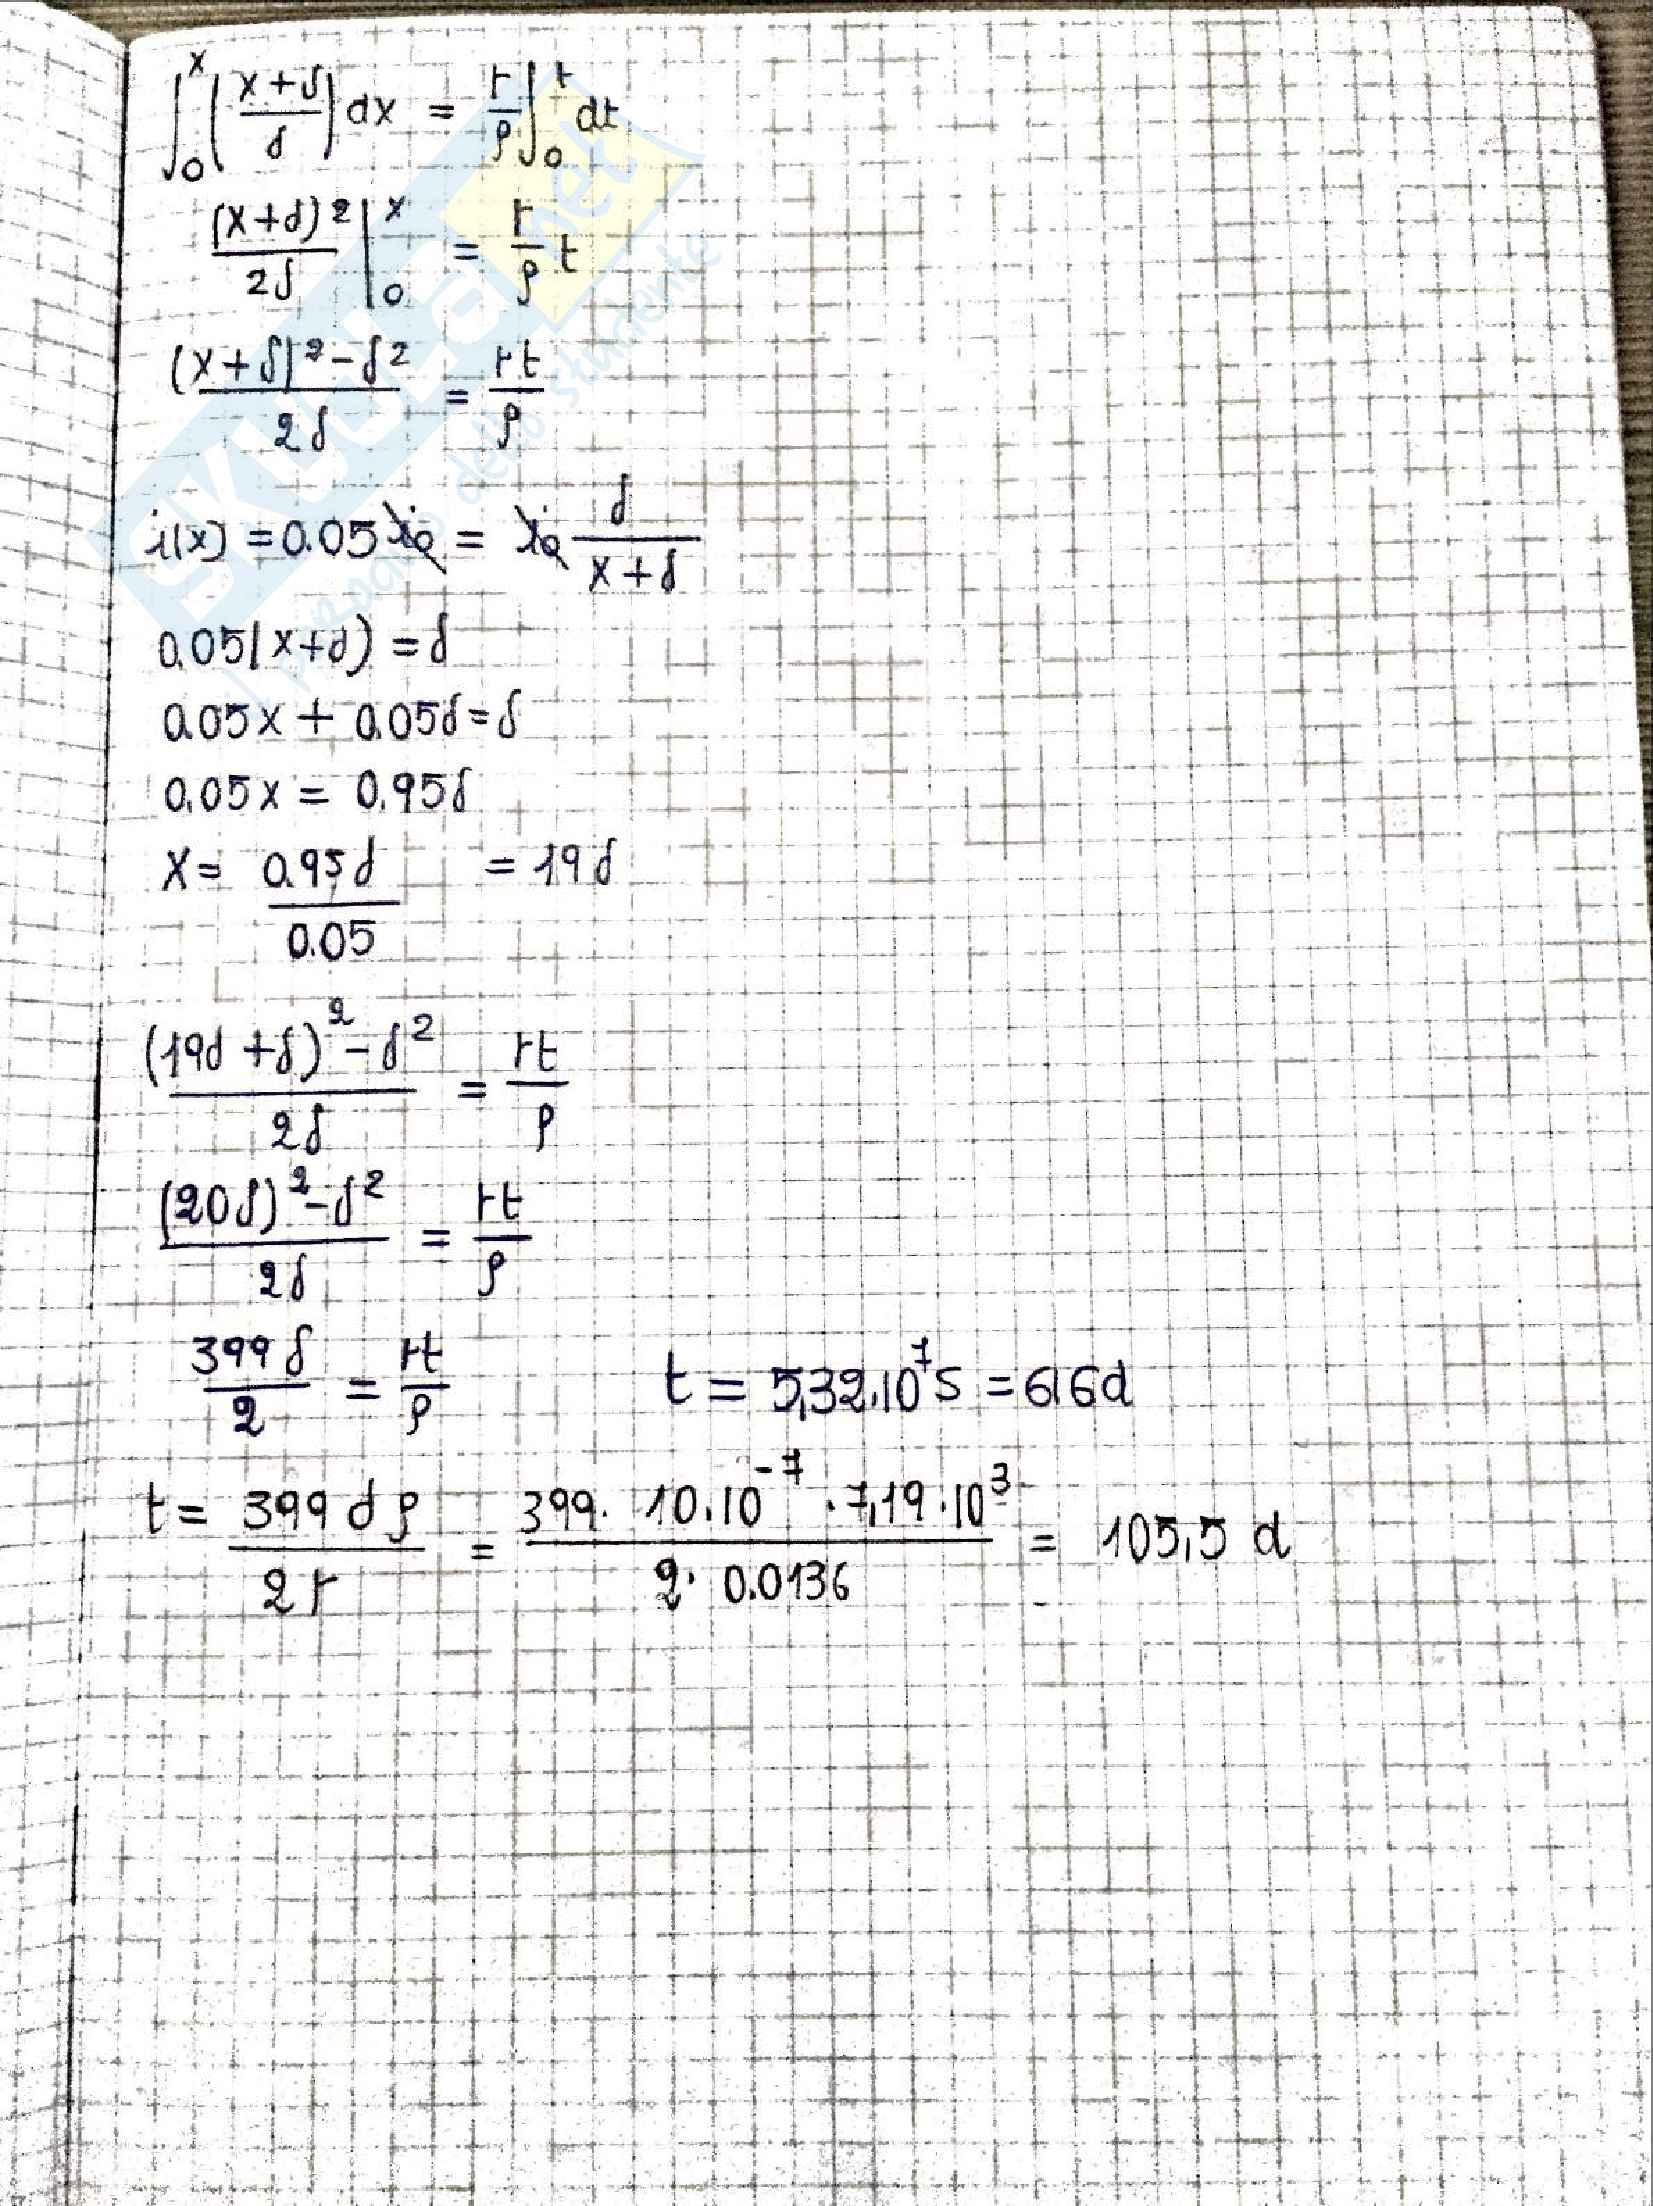 ∫₀ˣ ((x+δ)/δ) dx = r/ρ ∫₀ᵗ dt
(x+δ)²/2δ |₀ˣ = r/ρ t
((x+δ)²-δ²)/2δ = rt/ρ
i(x) = 0.05 i₀ = i₀ δ/(x+δ)
0.05(x+δ) = δ
0.05x + 0.05δ = δ
0.05x = 0.95δ
x = 0.95δ/0.05 = 19δ
((19δ+δ)²-δ²)/2δ = rt/ρ
((20δ)²-δ²)/2δ = rt/ρ
399δ/2 = rt/ρ t = 5,32.10⁷s = 616d
t = 399δρ/2r = 399. 10.10⁻⁷.7,19.10³/2. 0.0136 = 105,5 d
SKUOLA.net